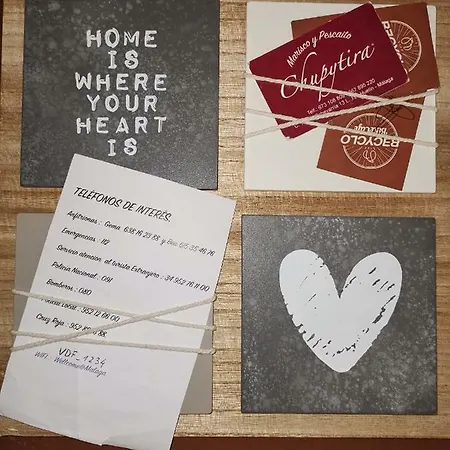 HOME
IS
WHERE
YOUR
HEART
IS
Marisco y Pescaito
Chupytira
Málaga
RECYCLO
BIKECAFE
TELÉFONOS DE INTERÉS.
Anfitrionas : Gema 638 16 23 88 y
Emergencias : 112
Servicio atencion al turista Extranjero : 34 952 16 11 00
Policia Nacional : 091
Bomberos : 080
Local : 952 12 66 00
Cruz Roja : 952
VDF_1234
WIFI : Wellcome@Malaga